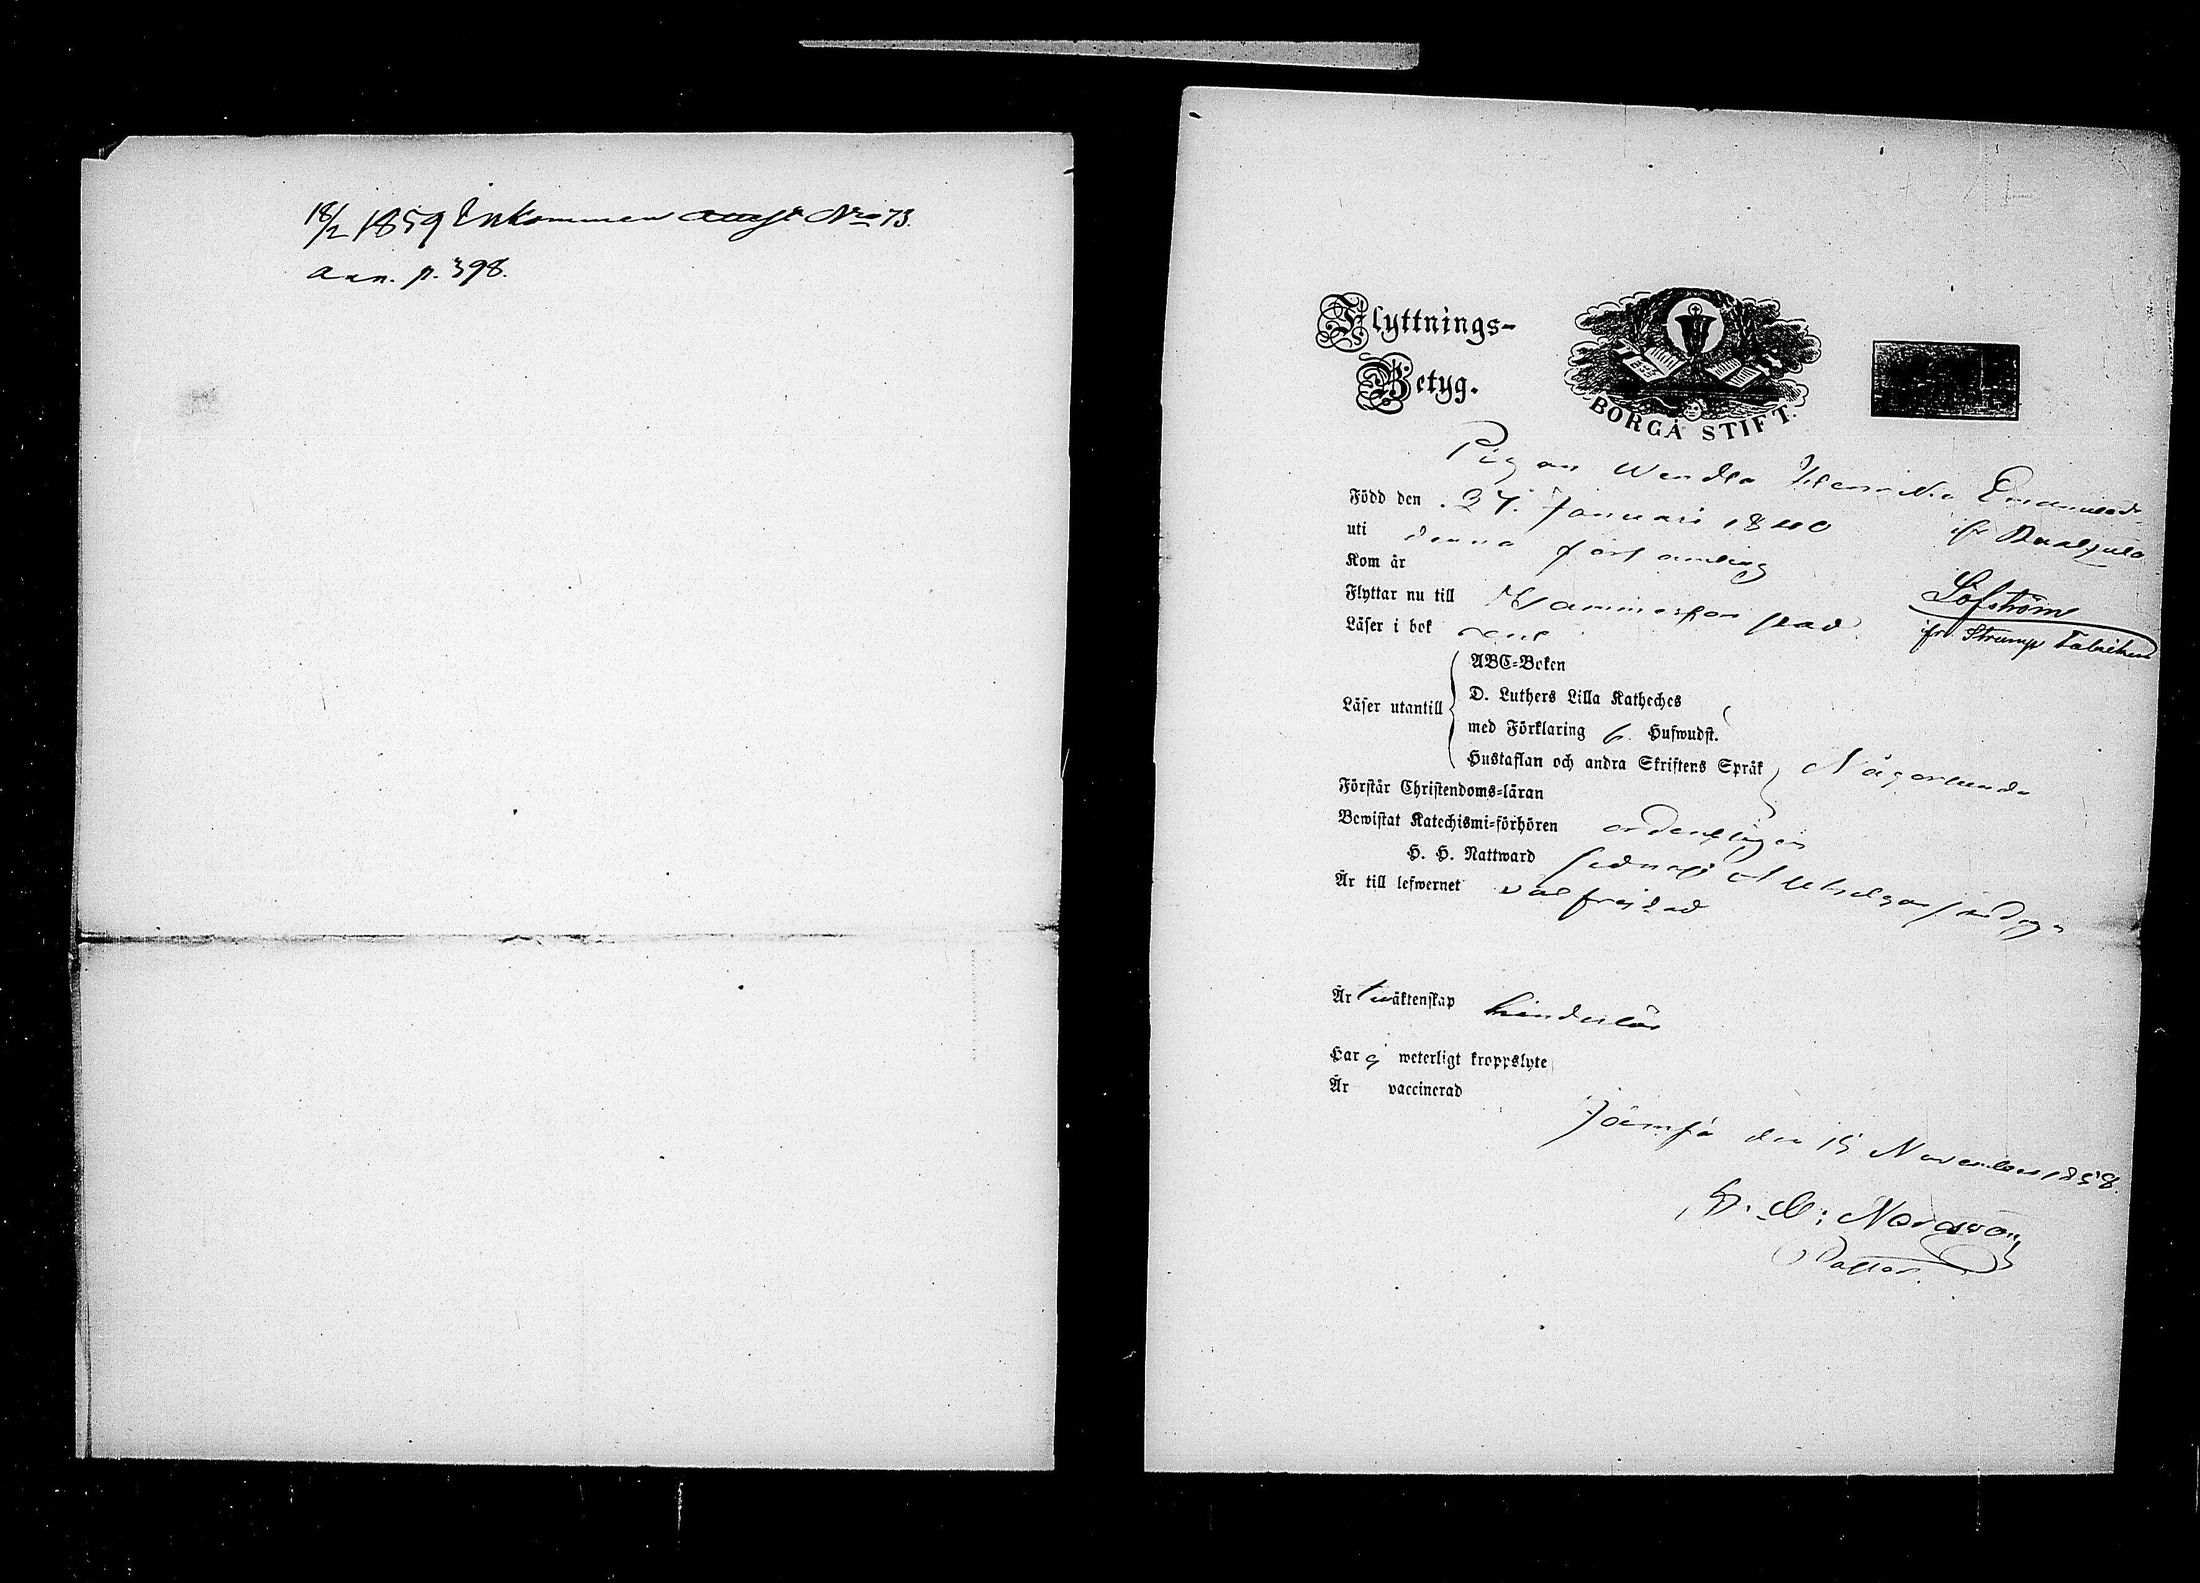 18/2 1859 Inkommen attest No 73.
ann. p. 398.
Flyttnings-
Betyg.
BORGÅ STIFT.
Pigan Wendla Henrika Emanuelsdr
Född den 27. Januari 1840
ifr
uti denna församling
Kom år
Löfström
Flyttar nu till Tammerfors stad.
ifr Strump Fabriken
Läser i bok rent
ABC-Boken
Läser utantill
D. Luthers Lilla Katheches
med Förklaring 6. Hufwudst.
Hustaflan och andra Skriftens Språk
Någorlunda
Förstår Christendoms-läran
Bewistat Katechismi-förhören ordentligen
H. H. Nattward sednast
Är till lefwernet välfrejdad
Är t. äktenskap hinderlös
Har ej weterligt kroppslyte
Är vaccinerad
Jämsä den 15 November 1858.
Pastor.